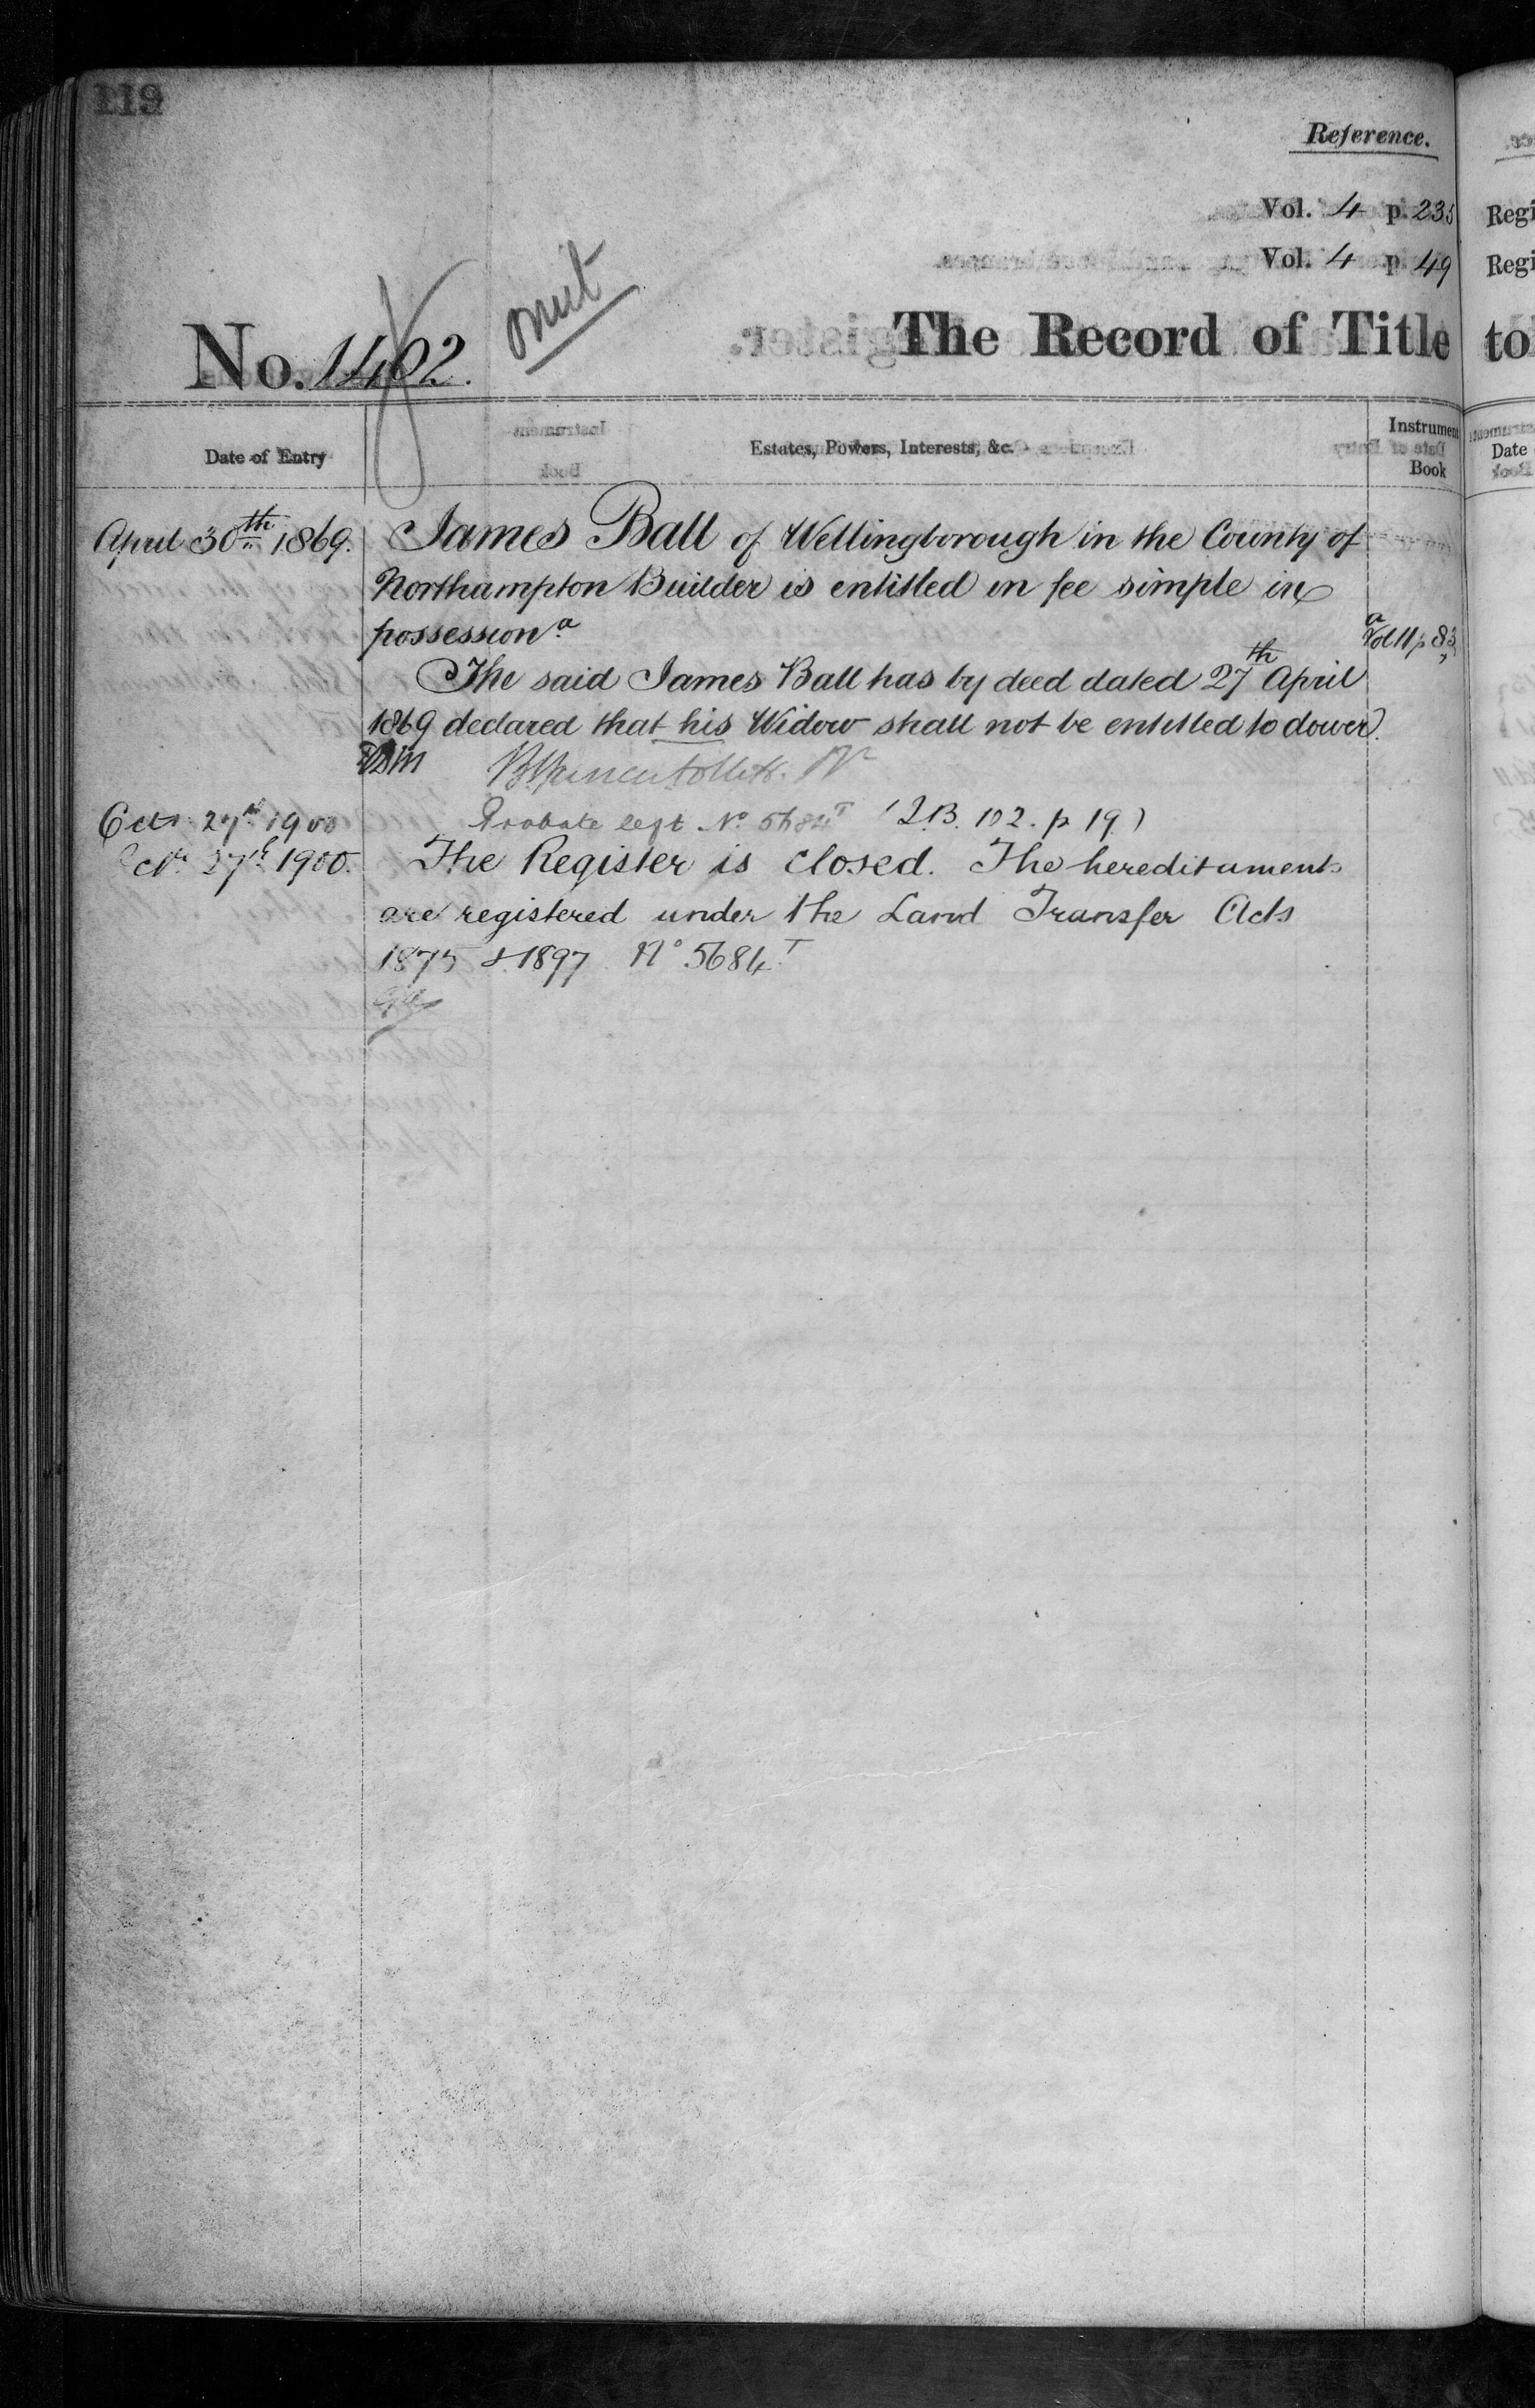 119
Reference.
Vol. 4 p. 235 Regi
Vol. 4 p 49 Regi
omit
No. 1402. The Record of Title to
Date of Entry Estates, Powers, Interests, &c. Instrument Book Date
April 30th 1869. James Ball of Wellingborough in the County of
Northampton Builder is entitled in fee simple in
possession a a Vol 11 p 83
The said James Ball has by deed dated 27th April
1869 declared that his Widow shall not be entitled to dower.
Octr 27th 1900 Probate left No 5684T (I.B. 102. p 19)
Octr 27th 1900. The Register is closed. The hereditaments
are registered under the Land Transfer Acts
1875 & 1897 No 5684T